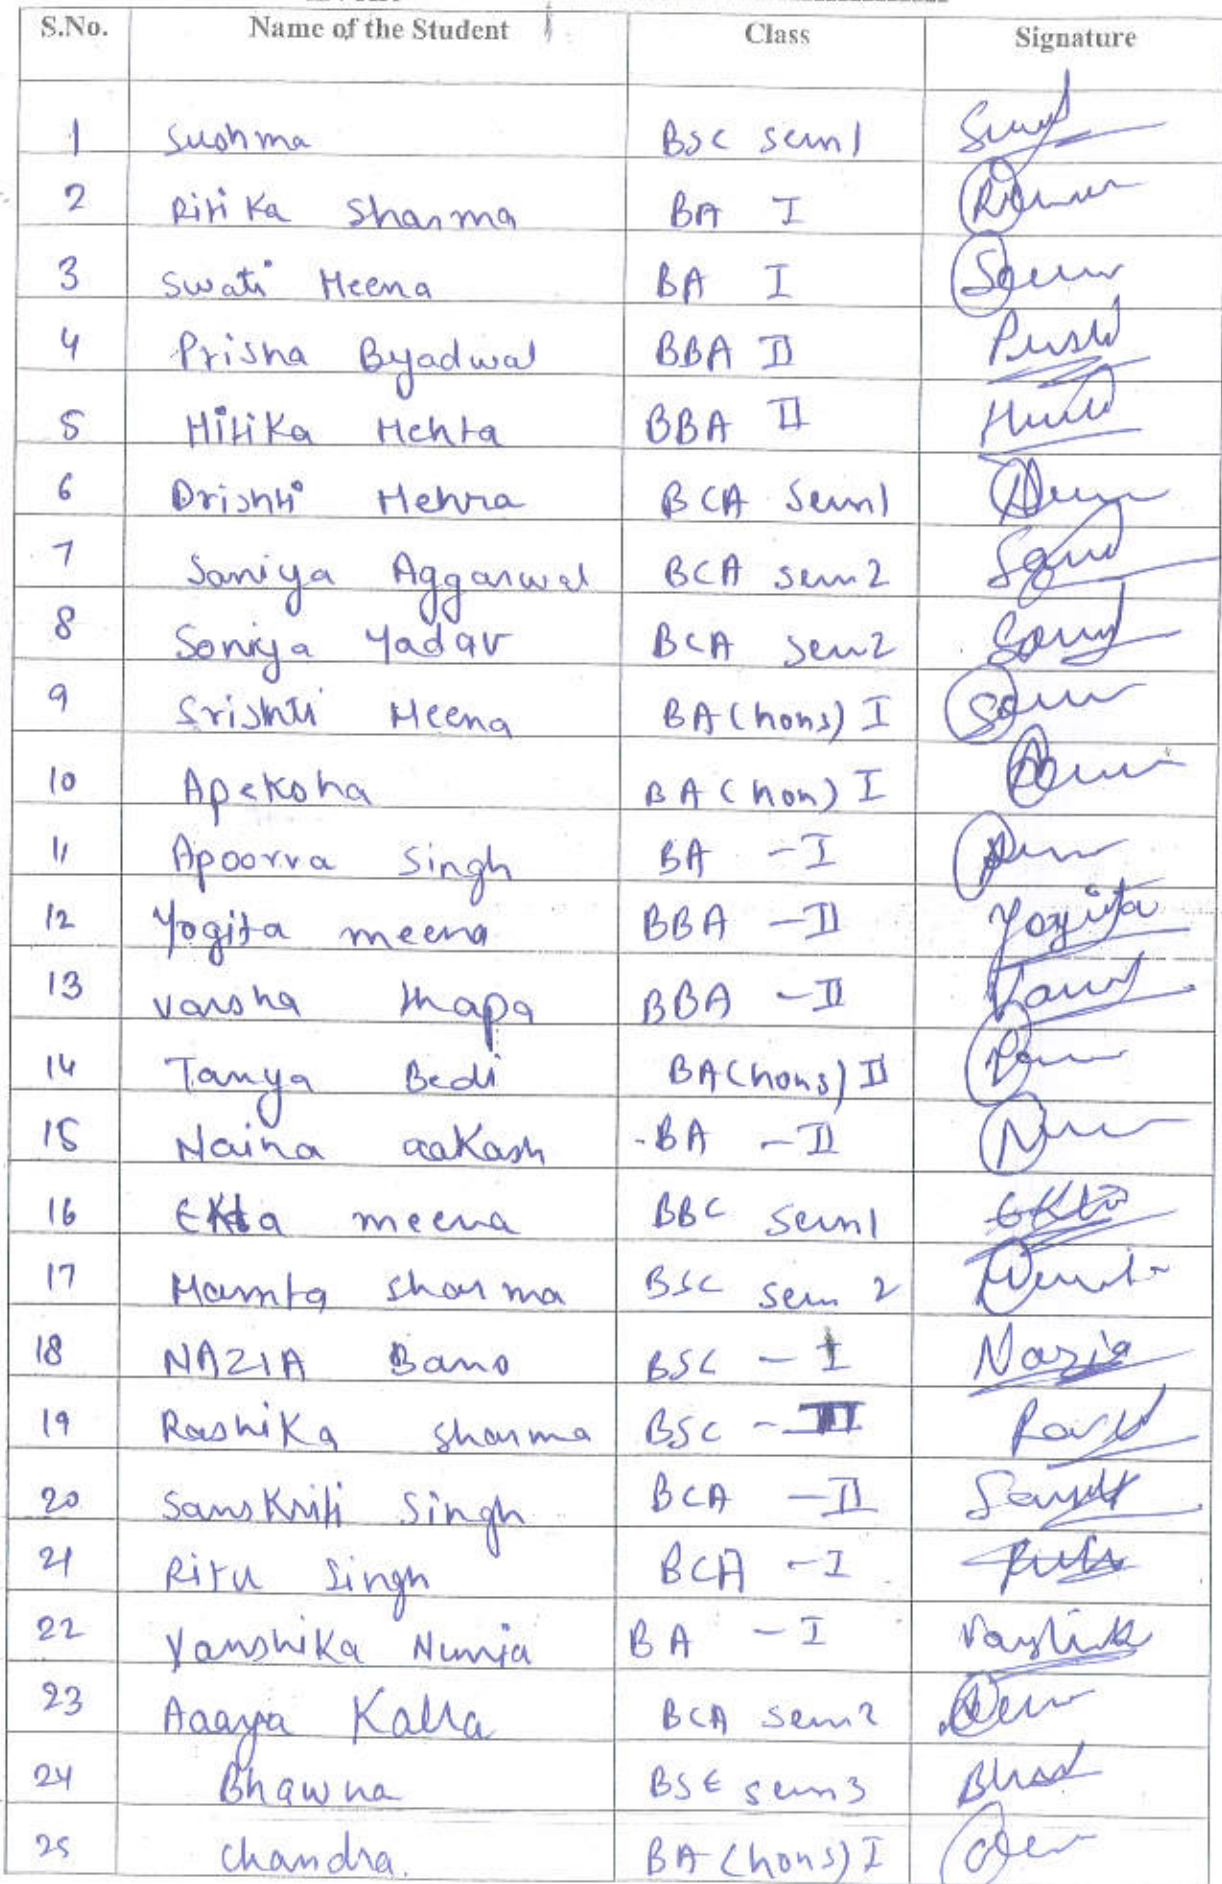 S.No. Name of the Student Class Signature
1 Sushma BSC sem1
2 Ritika Sharma BA I
3 Swati Meena BA I
4 Prisha Byadwal BBA II
5 Mitika Mehta BBA II
6 Drishti Mehra BCA Sem1
7 Saniya Aggarwal BCA sem2
8 Soniya Yadav BCA sem2
9 Srishti Meena BA (hons) I
10 Apeksha BA (hon) I
11 Apoorva Singh BA - I
12 Yogita meena BBA - II Yogita
13 Varsha Thapa BBA - II
14 Tanya Bedi BA (hons) II
15 Naina aakash BA - II
16 Ekta meena BBC sem1 Ekta
17 Mamta Sharma BSC sem 2
18 NAZIA Bano BSC - I Nazia
19 Rashika Sharma BSC - III
20 Sanskriti Singh BCA - II
21 Ritu Singh BCA - I
22 Vanshika Nunia BA - I
23 Aaaya Kalra BCA sem2
24 Bhawna BSC sem3
25 Chandra. BA (hons) I